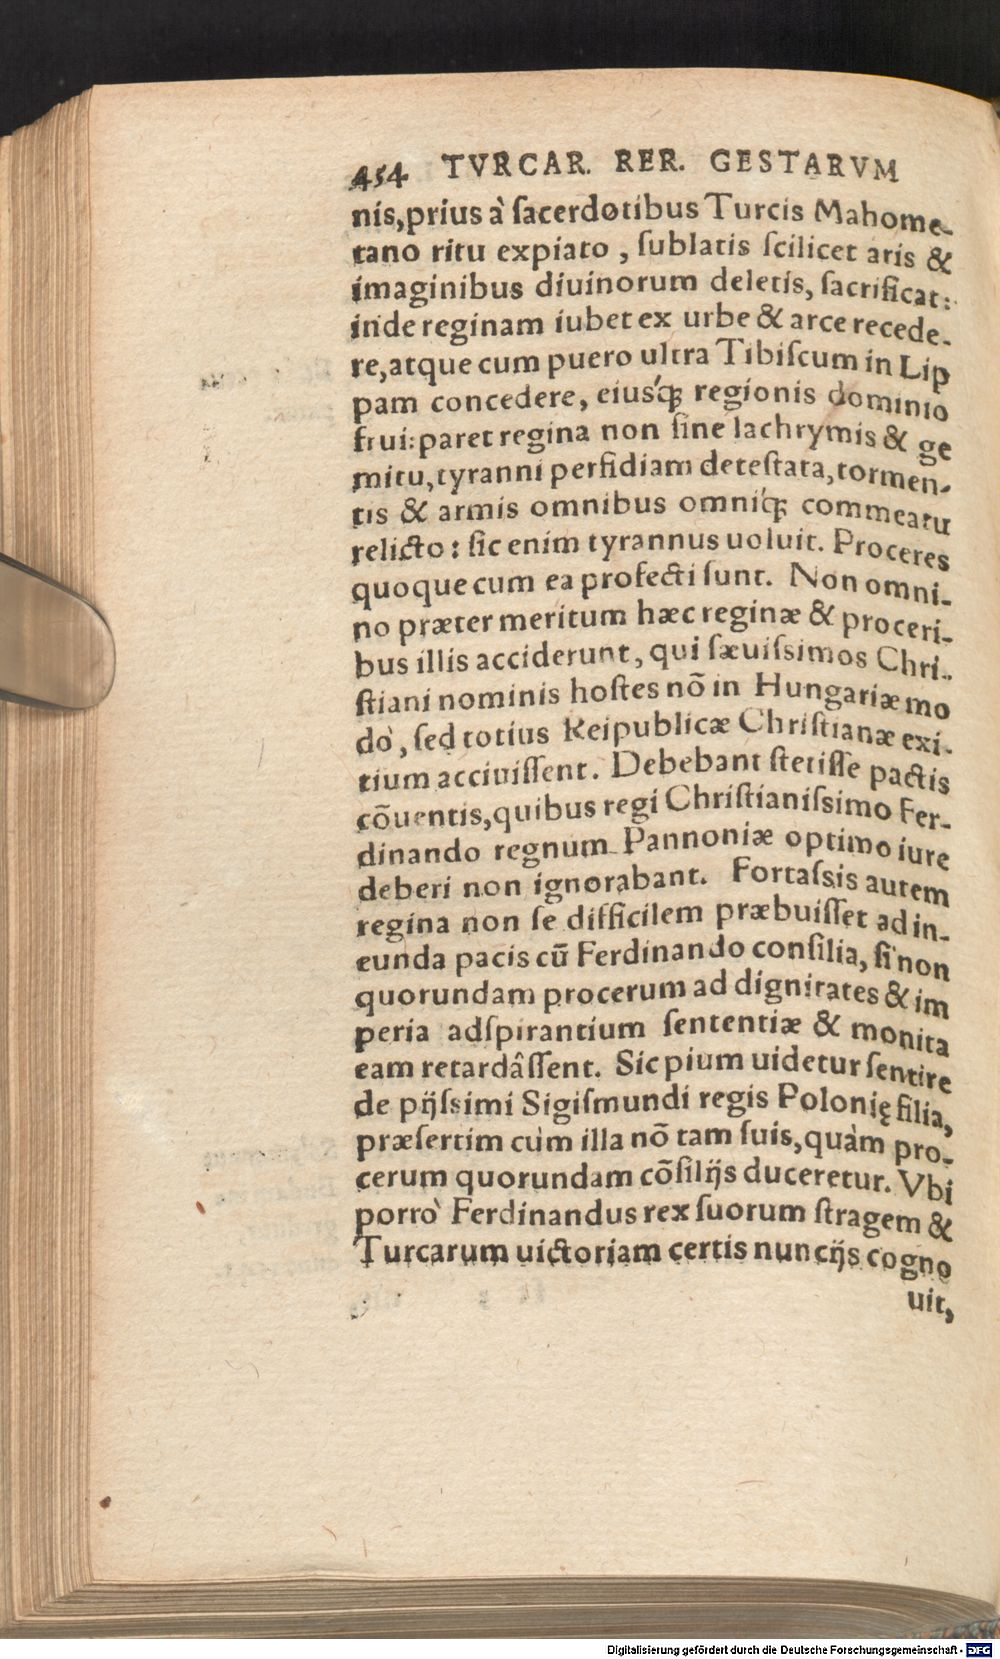 454 TVRCAR. RER. GESTARVM
nis, prius à sacerdotibus Turcis Mahome-
tano ritu expiato, sublatis scilicet aris &
imaginibus diuinorum deletis, sacrificat:
inde reginam iubet ex urbe & arce recede-
re, atque cum puero ultra Tibiscum in Lip
pam concedere, eiusq́ꝫ regionis dominio
frui: paret regina non sine lachrymis & ge
mitu, tyranni perfidiam detestata, tormen-
tis & armis omnibus omniq́ꝫ commeatu
relicto: sic enim tyrannus uoluit. Proceres
quoque cum ea profecti sunt. Non omni-
no præter meritum hæc reginæ & proceri-
bus illis acciderunt, qui sæuissimos Chri-
stiani nominis hostes nõ in Hungariæ mo
dò, sed totius Reipublicæ Christianæ exi-
tium acciuissent. Debebant stetisse pactis
cõuentis, quibus regi Christianissimo Fer-
dinando regnum Pannoniæ optimo iure
deberi non ignorabant. Fortassis autem
regina non se difficilem præbuisset ad in-
eunda pacis cũ Ferdinando consilia, si non
quorundam procerum ad dignitates & im
peria adspirantium sententiæ & monita
eam retardâssent. Sic pium uidetur sentire
de pijssimi Sigismundi regis Polonię filia,
præsertim cùm illa nõ tam suis, quàm pro-
cerum quorundam cõsilijs duceretur. Vbi
porrò Ferdinandus rex suorum stragem &
Turcarum uictoriam certis nuncijs cogno
uit,
Digitalisierung gefördert durch die Deutsche Forschungsgemeinschaft - DFG